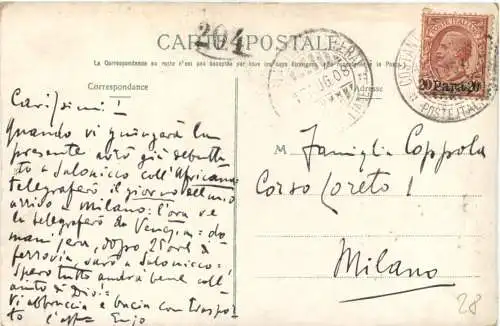 204
CARTE POSTALE
La Correspondance au recto n'est pas acceptée par tous les pays étrangers
Correspondance
Adresse
POSTE ITALIANE
20 Para 20
POSTE ITAL
UG 08
Carissimi!
Quando vi giungerà la
presente avrò già debutta-
to a Salonicco coll'Africana
telegraferò il giorno del mio
arrivo a Milano: l'ora ve
la telegraferò da Venezia: do-
mani sera, dopo 25 ore di
ferrovia, sarò a Salonicco:
spero tutto andrà bene coll'
aiuto di Dio!
Vi abbraccia e bacia con traspor-
to l'aff. Enzo
M Famiglia Coppola
Corso Loreto 1
Milano
28